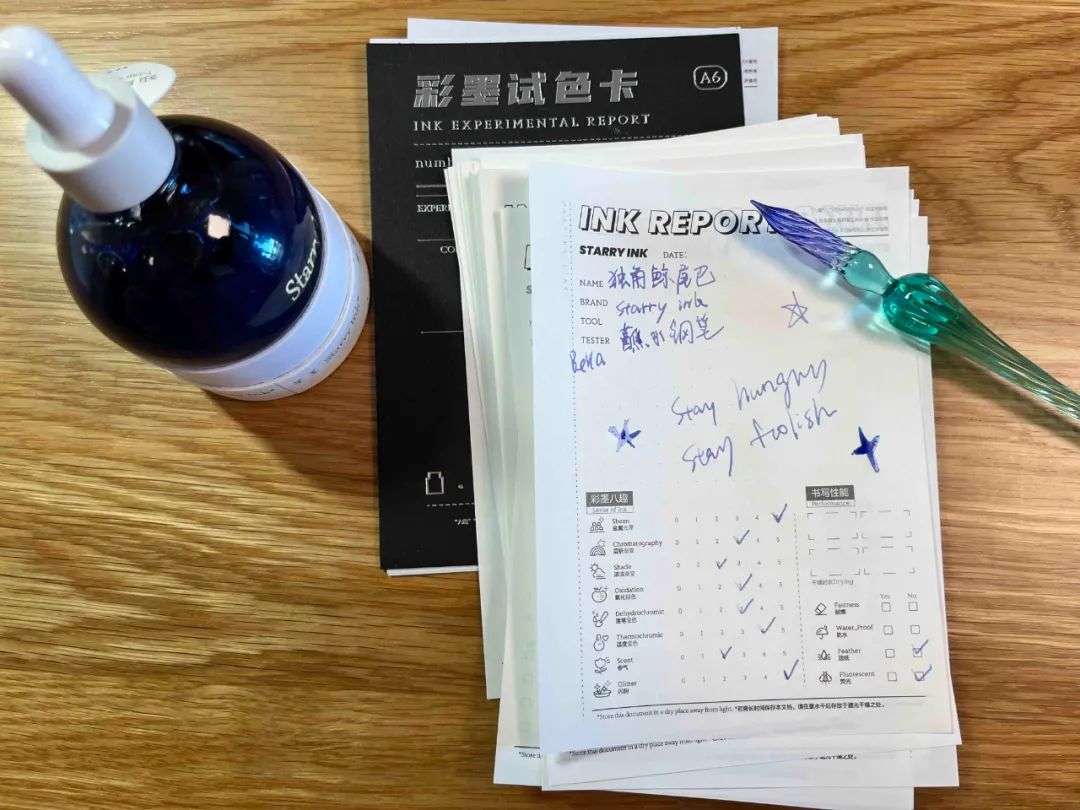 彩墨试色卡
A6
INK EXPERIMENTAL REPORT
INK REPORT
STARRY INK DATE:
NAME 独角鲸尾巴
BRAND starry ink
TOOL 蘸水钢笔
TESTER Bella
Stay hungry
Stay foolish
彩墨八趣
Sense of ink
书写性能
Performance
Sheen 0 1 2 3 4
金属光泽
Chromatography 0 1 2 4 5
层析分变
Shade 0 1 3 4 5
Oxidation 0 1 2 4 5
氧化分色
Dehydrochromic 0 1 2 4 5
Thermochromic 0 1 2 3 5
温度变色
Scent 0 1 3 4 5
香气
Glitter 0 1 2 3 4
闪粉
干燥时长Drying
Yes No
Fastness
耐擦
Water_Proof
防水
Feather
洇纸
Fluorescent
荧光
*Store this document in a dry place away from light. *若需长时间保存本文档，请在墨水干后存放于避光干燥之处。